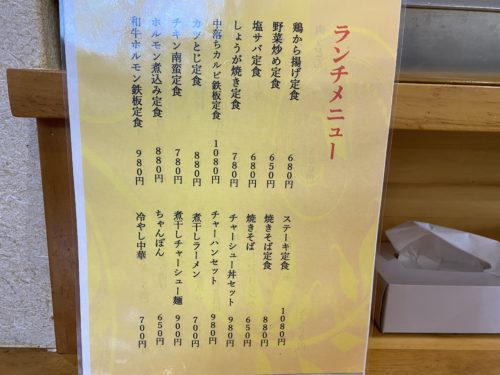 ランチメニュー
鶏から揚げ定食 680円
野菜炒め定食 650円
塩サバ定食 680円
しょうが焼き定食 780円
中落ちカルビ鉄板定食 1080円
カツとじ定食 880円
チキン南蛮定食 780円
ホルモン煮込み定食 880円
和牛ホルモン鉄板定食 980円
ステーキ定食 1080円
焼きそば定食 880円
焼きそば 650円
チャーシュー丼セット 980円
チャーハンセット 980円
煮干しラーメン 700円
煮干しチャーシュー麺 900円
ちゃんぽん 650円
冷やし中華 700円